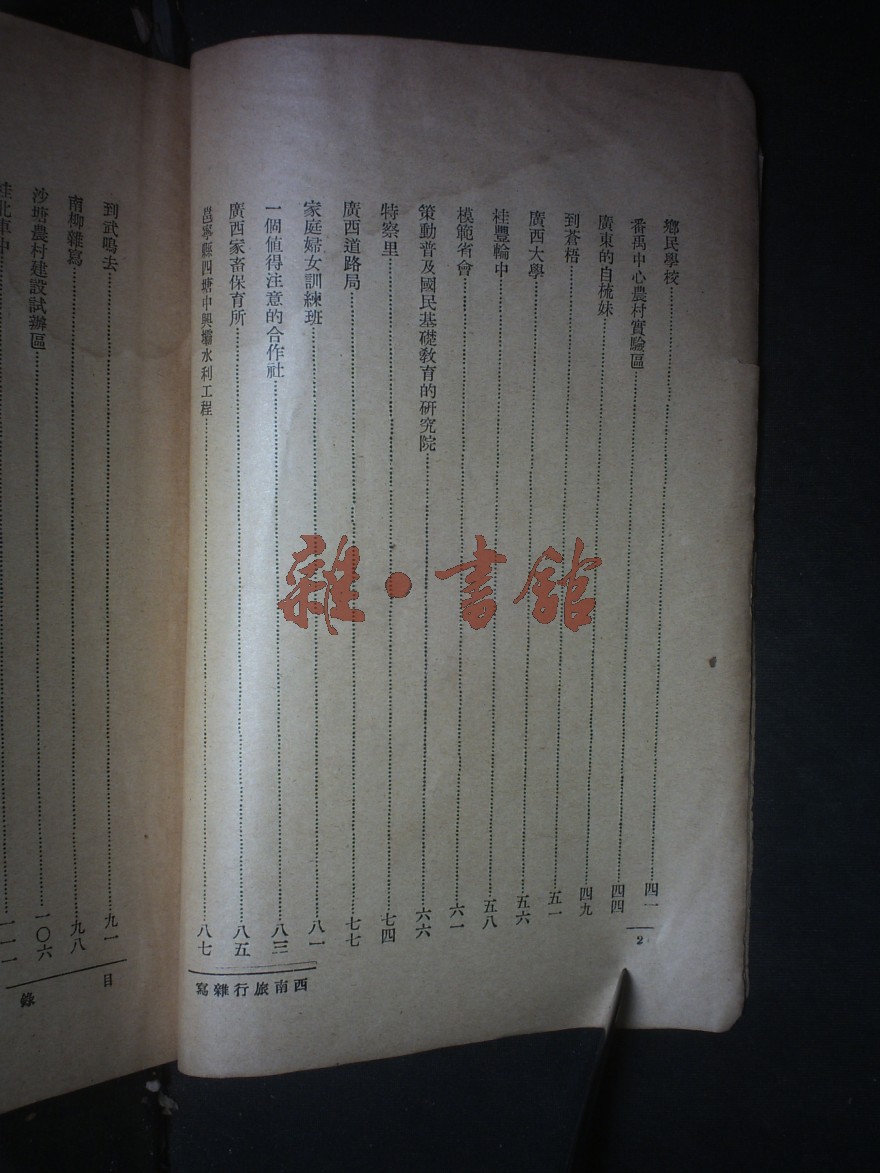 鄉民學校……四一
番禹中心農村實驗區……四四
廣東的自梳妹……四九
到蒼梧……五一
廣西大學……五六
桂豐輪中……五八
模範省會……六一
策動普及國民基礎教育的研究院……六六
特察里……七四
廣西道路局……七七
家庭婦女訓練班……八一
一個值得注意的合作社……八三
廣西家畜保育所……八五
邕寧縣四塘中興壩水利工程……八七
2
西南旅行雜寫
到武鳴去……九一
南柳雜寫……九八
沙塘農村建設試辦區……一〇六
桂北車中……一一一
目錄
雜·書館